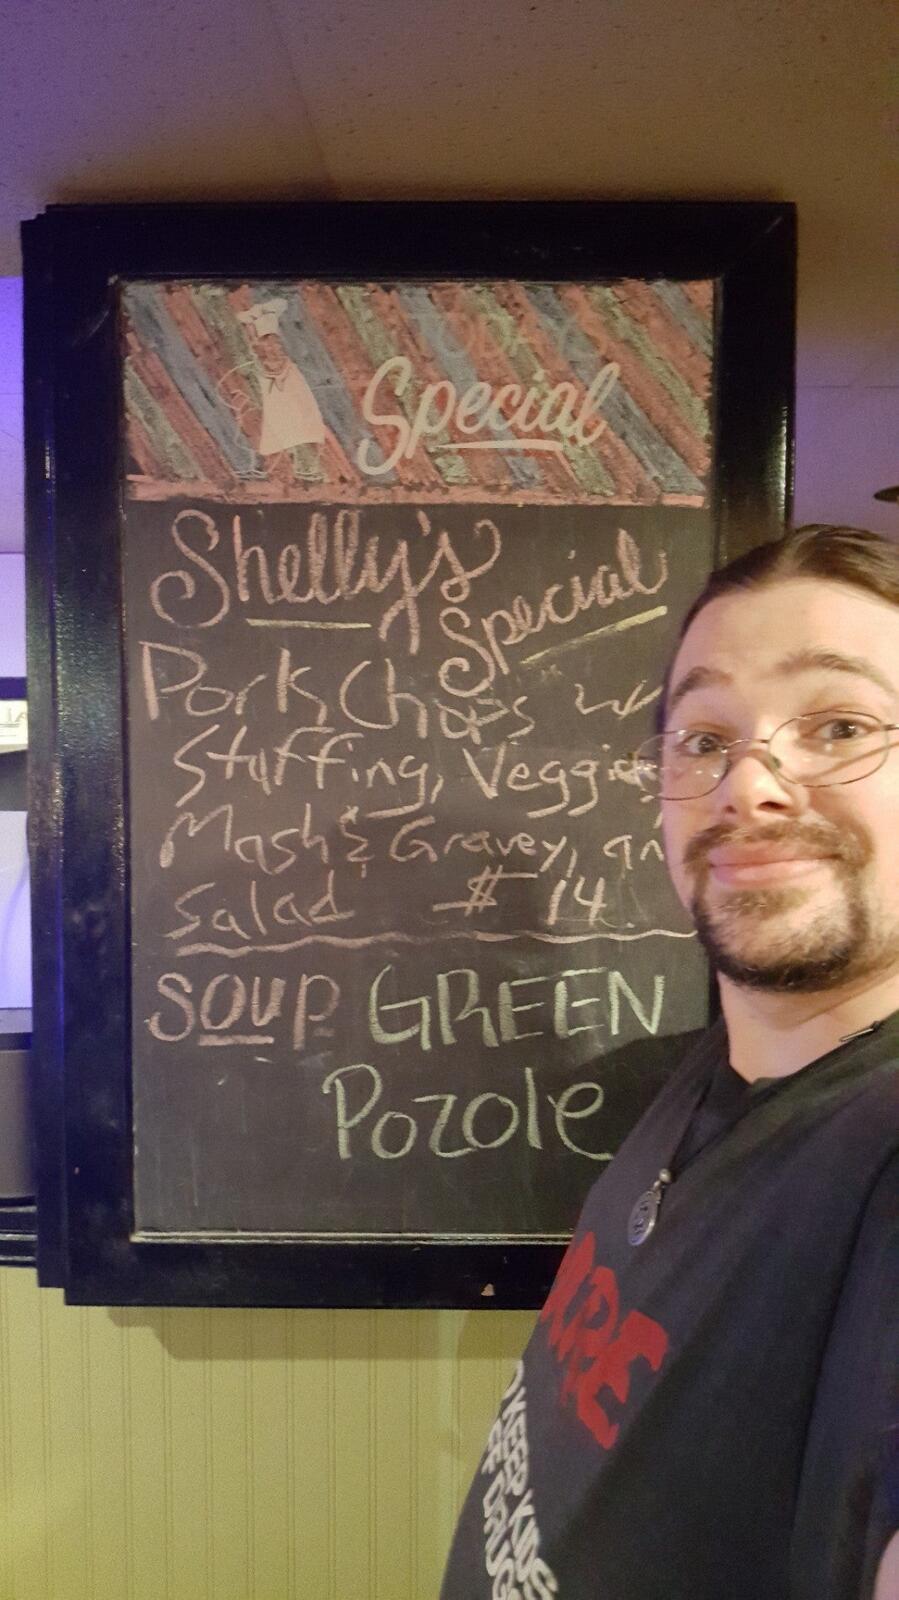 TODAY'S
Special
Shelly's
Special
Pork Chops w/
Stuffing, Veggie
Mash & Gravey, an
Salad $14
SOUP GREEN
Pozole
ARE
O KEEP KIDS
OFF DRUGS